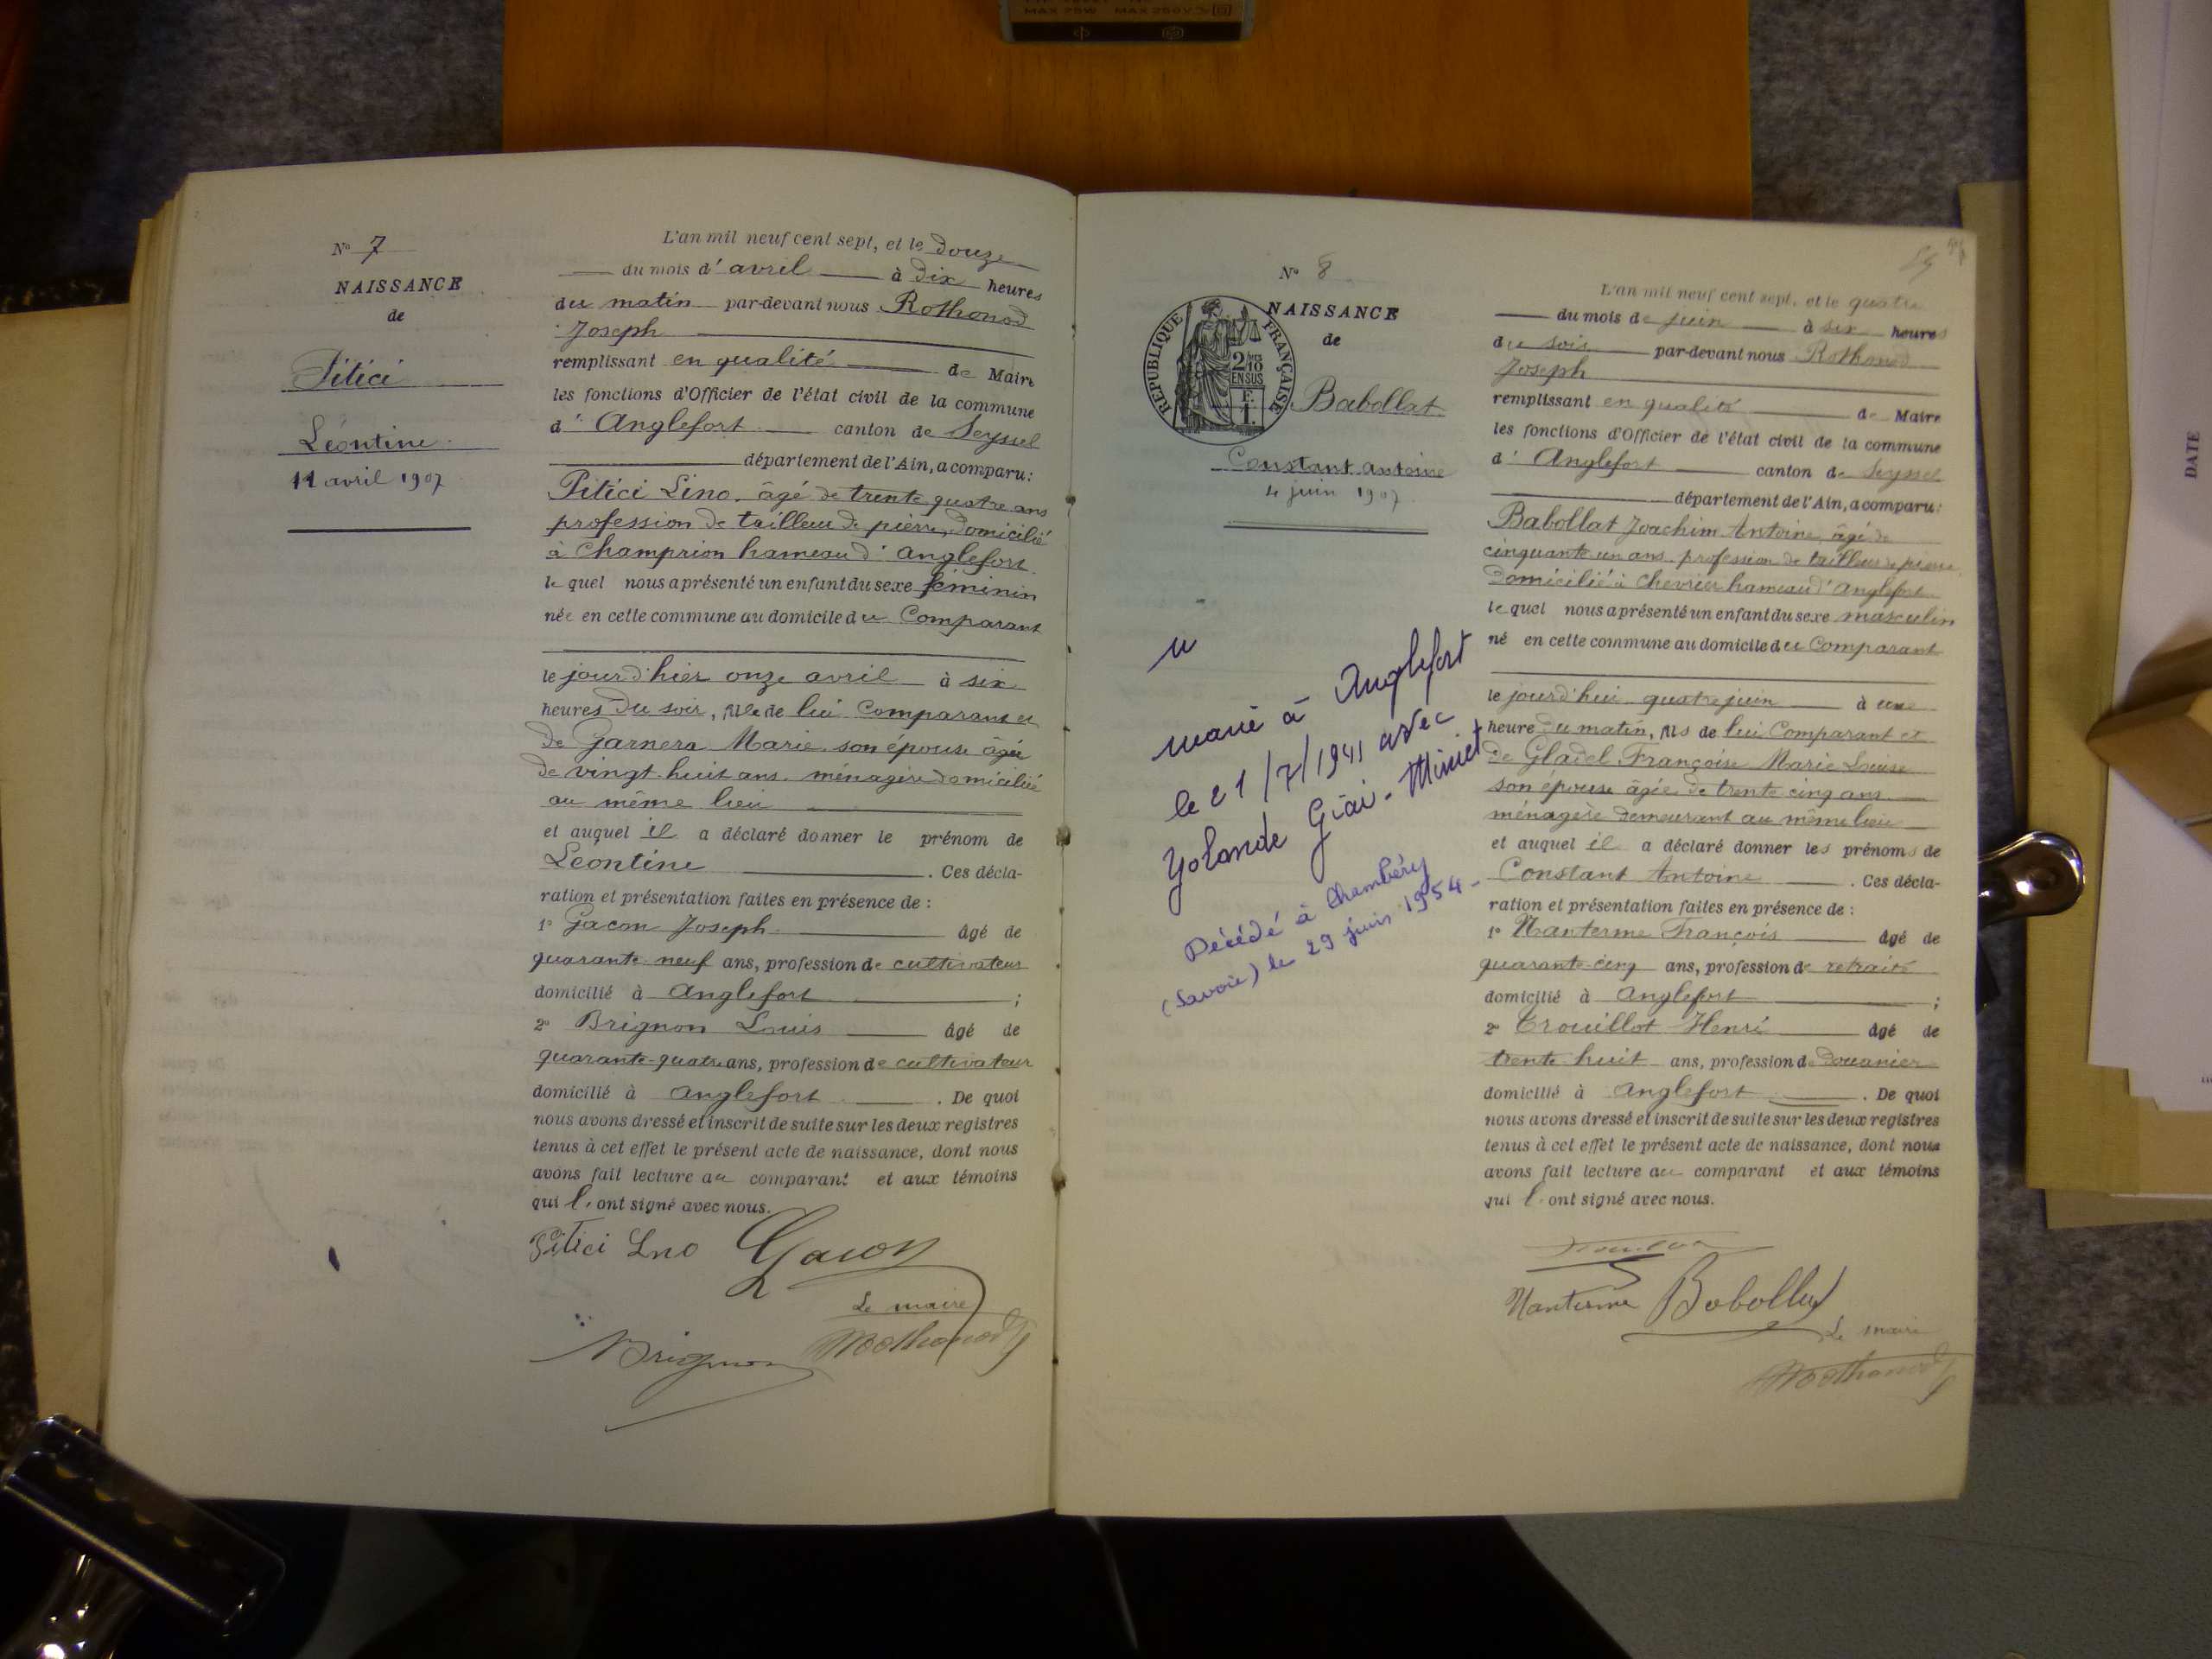 MAX 75W MAX 250V
N° 7
NAISSANCE
de
Pitici
Léontine
11 avril 1907
L'an mil neuf cent sept, et le douze
du mois d'avril à dix heures
du matin par-devant nous Rothonod
Joseph
remplissant en qualité de Maire
les fonctions d'Officier de l'état civil de la commune
d'Anglefort canton de Seyssel
département de l'Ain, a comparu:
Pitici Lino âgé de trente quatre ans
profession de tailleur de pierre, domicilié
à Champrion hameau d'Anglefort
le quel nous a présenté un enfant du sexe féminin
née en cette commune au domicile du Comparant
le jour d'hier onze avril à six
heures du soir, fille de lui Comparant et
de Garnera Marie son épouse âgée
de vingt-huit ans ménagère domiciliée
au même lieu
et auquel il a déclaré donner le prénom de
Léontine. Ces décla-
ration et présentation faites en présence de :
1° Gacon Joseph âgé de
quarante-neuf ans, profession de cultivateur
domicilié à Anglefort ;
2° Brignon Louis âgé de
quarante-quatre ans, profession de cultivateur
domicilié à Anglefort. De quoi
nous avons dressé et inscrit de suite sur les deux registres
tenus à cet effet le présent acte de naissance, dont nous
avons fait lecture au comparant et aux témoins
qui l'ont signé avec nous.
Pitici Lno Gacon
Le maire
Brignon Rothonod
N° 8
NAISSANCE
de
RÉPUBLIQUE FRANÇAISE
2/10
EN SUS
F.
1.
Babollat
Constant Antoine
4 juin 1907
marié à Anglefort
le 21/7/1941 avec
Yolande Giai-Miniet
Décédé à Chambéry
(Savoie) le 29 juin 1954-
L'an mil neuf cent sept, et le quatre
du mois de juin à six heures
du soir par-devant nous Rothonod
Joseph
remplissant en qualité de Maire
les fonctions d'Officier de l'état civil de la commune
d'Anglefort canton de Seyssel
département de l'Ain, a comparu:
Babollat Joachim Antoine âgé de
cinquante un ans profession de tailleur de pierre
domicilié à Chevrier hameau d'Anglefort
le quel nous a présenté un enfant du sexe masculin
né en cette commune au domicile du Comparant
le jourd'hui quatre juin à une
heure du matin, fils de lui Comparant et
de Gladel Françoise Marie Louise
son épouse âgée de trente cinq ans
ménagère demeurant au même lieu
et auquel il a déclaré donner les prénoms de
Constant Antoine. Ces décla-
ration et présentation faites en présence de :
1° Nanterme François âgé de
quarante-cinq ans, profession de retraité
domicilié à Anglefort ;
2° Trouillot Henri âgé de
trente-huit ans, profession de douanier
domicilié à Anglefort. De quoi
nous avons dressé et inscrit de suite sur les deux registres
tenus à cet effet le présent acte de naissance, dont nous
avons fait lecture au comparant et aux témoins
qui l'ont signé avec nous.
Nanterme Babollat
Le maire
Rothonod
DATE